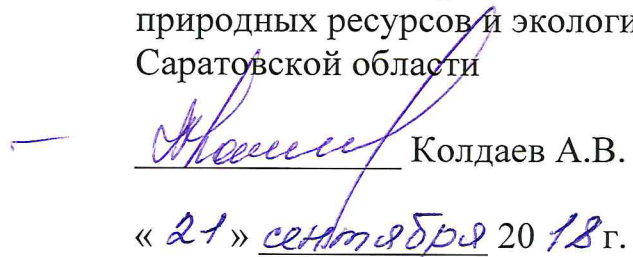 природных ресурсов и экологи
Саратовской области
Колдаев А.В.
« 21 » сентября 20 18 г.